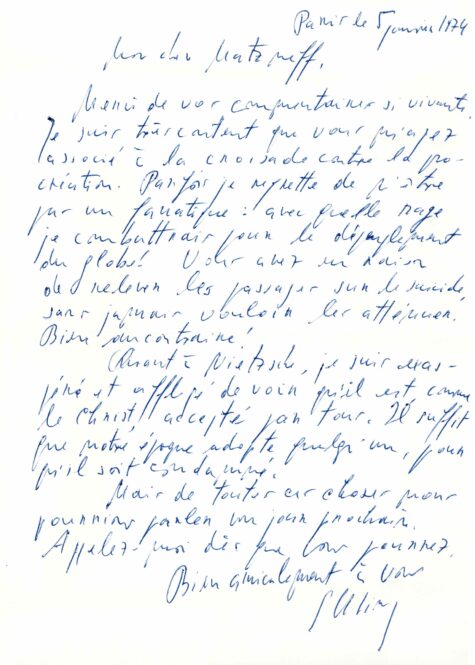 Paris le 5 janvier 1974
Mon cher Matzneff,
Merci de vos commentaires si vivants.
Je suis très content que vous m'ayez
associé à la croisade contre la pro-
création. Parfois je regrette de n'être
pas un fanatique : avec quelle rage
je combattrais pour le dépeuplement
du globe! Vous avez eu raison
de relever les passages sur le suicide,
sans jamais vouloir les atténuer.
Bien au contraire!
Quant à Nietzsche, je suis exas-
péré et affligé de voir qu'il est, comme
le Christ, accepté par tous. Il suffit
que notre époque adopte quelqu'un, pour
qu'il soit condamné.
Mais de toutes ces choses nous
pourrions parler un jour prochain.
Appelez-moi dès que vous pourrez.
Bien amicalement à vous